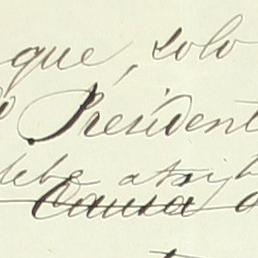 que, solo
President
debe atrib
Causa